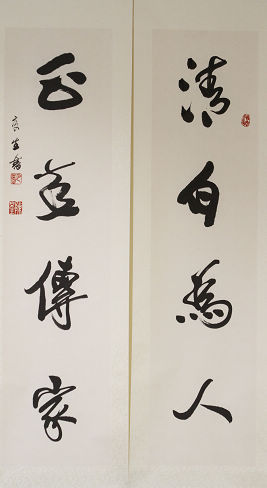 清白為人
正道傳家